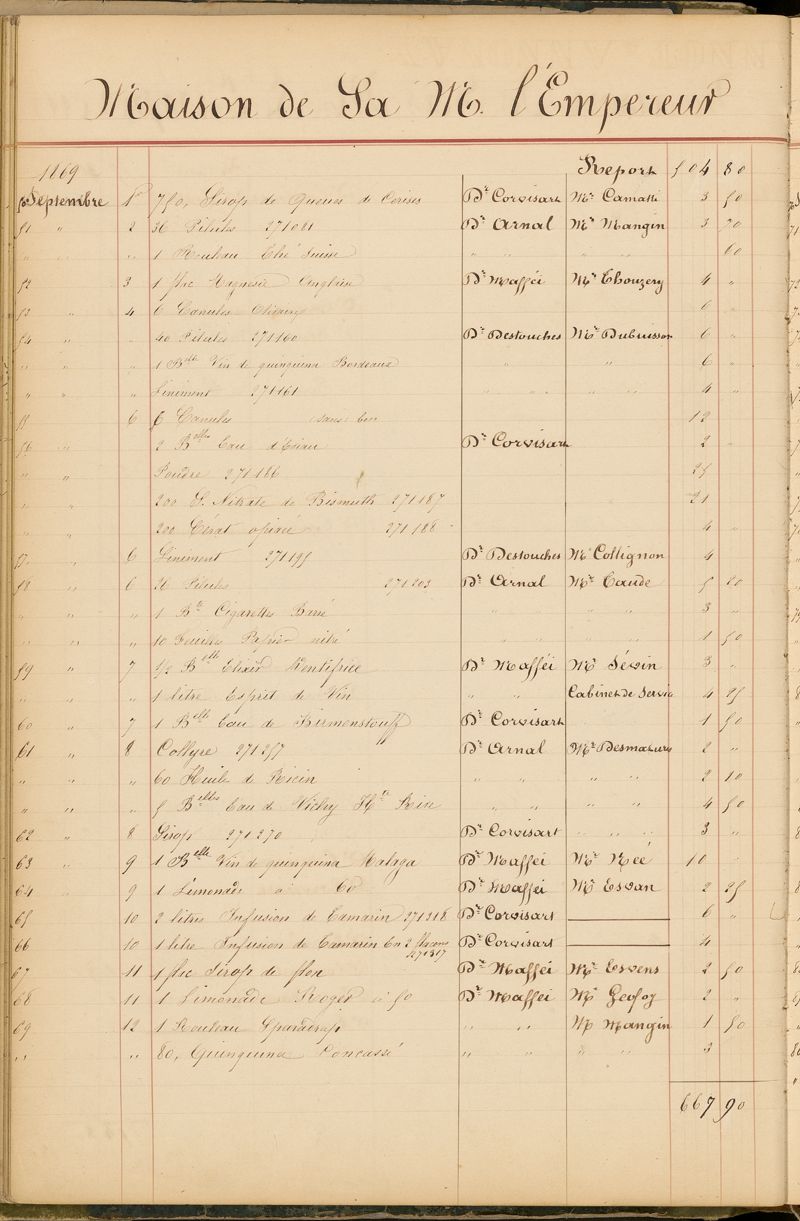 Maison de Sa M. l'Empereur
1869 Report 504 80
50 Septembre 1er 750, Sirop de Queues de Cerises Dr Corvisart Mr Camatti 3 50
51 " 2 36 Pilules 271081 Dr Arnal Mr Mangin 3 70
" " " 1 Rouleau Thé Suisse " " " " 60
52 3 1 flac Magnésie Anglaise Dr Mafféi Mr Thouzery 4 "
53 " 4 6 Canules 6 "
54 " 40 Pilules 271160 Dr Destouches Mr Dubuisson 6 "
" " " 1 Blle Vin de quinquina Bordeaux " " 6 "
" " " Liniment 271161 " " " " " 4 "
55 6 6 Canules (sans) 12
56 " 2 Blles Eau d'Evian Dr Corvisart 2 "
" " Poudre 271186 25
" " 200 S. Nitrate de Bismuth 271187 21
" " 200 Cérat opiacé 271188 4 "
57 " 6 Liniment 271195 Dr Destouches Mr Collignon 4
58 " 6 36 Pilules 271203 Dr Arnal Mr Caude 5 20
" " " 1 Bte Cigarettes Barié " " " 3 "
" " " 10 Feuilles Papier nitré " " " " 1 50
59 " 7 1/2 Blle Elixir Dentifrice Dr Mafféi Mr Sévin 3 "
" " " 1 litre Esprit de Vin " " Cabinet de Service 4 25
60 " 7 1 Blle Eau de Birmenstorff Dr Corvisart 1 50
61 " 8 Collyre 271257 Dr Arnal Mr Desmaturs 2 "
" " " 60 Huile d Ricin " " " " 2 10
" " " 5 Blles Eau de Vichy Hte Rive " " " " 4 50
62 " 8 Sirop 271270 Dr Corvisart " " " 3 "
63 " 9 1 Blle Vin de quinquina Malaga Dr Mafféi Mr Née 10
64 " 9 1 Limonade à 60 Dr Mafféi Mr Eswan 2 25
65 10 2 litres Infusion de Tamarin 271318 Dr Corvisart 6 "
66 10 1 litre Infusion de Tamarin En 2 flacons Dr Corvisart 4
271317
67 11 1 flac Sirop de flon Dr Mafféi Mr Eswens 2 50
68 11 1 Limonade Roger à 50 Dr Mafféi Mr Geofoy 2 "
69 12 1 Rouleau Sparadrap " " Mr Mangin 1 50
" " 80, Quinquina Concassé " " " " 3
667 90